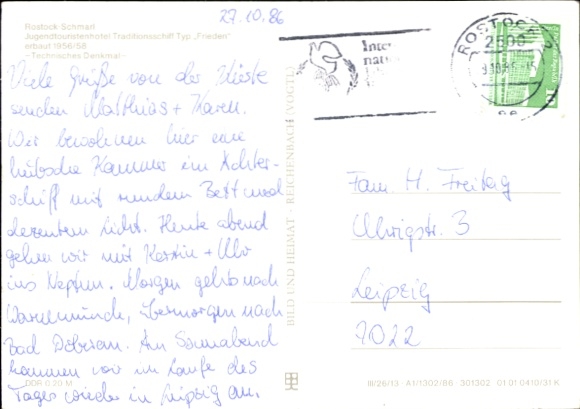 27.10.86
Rostock-Schmarl
Jugendtouristenhotel Traditionsschiff Typ „Frieden"
erbaut 1956/58
- Technisches Denkmal -
Viele Grüße von der Küste
senden Matthias + Karen.
Wir bewohnen hier eine
hübsche Kammer im Achter-
schiff mit rundem Bett und
dezentem Licht. Heute abend
gehen wir mit Kerstin + Ulv
ins Neptun. Morgen geht's nach
Warnemünde, übermorgen nach
Bad Doberan. Am Sonnabend
kommen wir im Laufe des
Tages wieder in Leipzig an.
DDR 0,20 M
BILD UND HEIMAT · REICHENBACH (VOGTL)
Inter
natio
ROSTOCK 2
2500
10
Fam. H. Freitag
Ulrigstr. 3
Leipzig
7022
III/26/13 · A1/1302/86 · 301302 01 01 0410/31 K